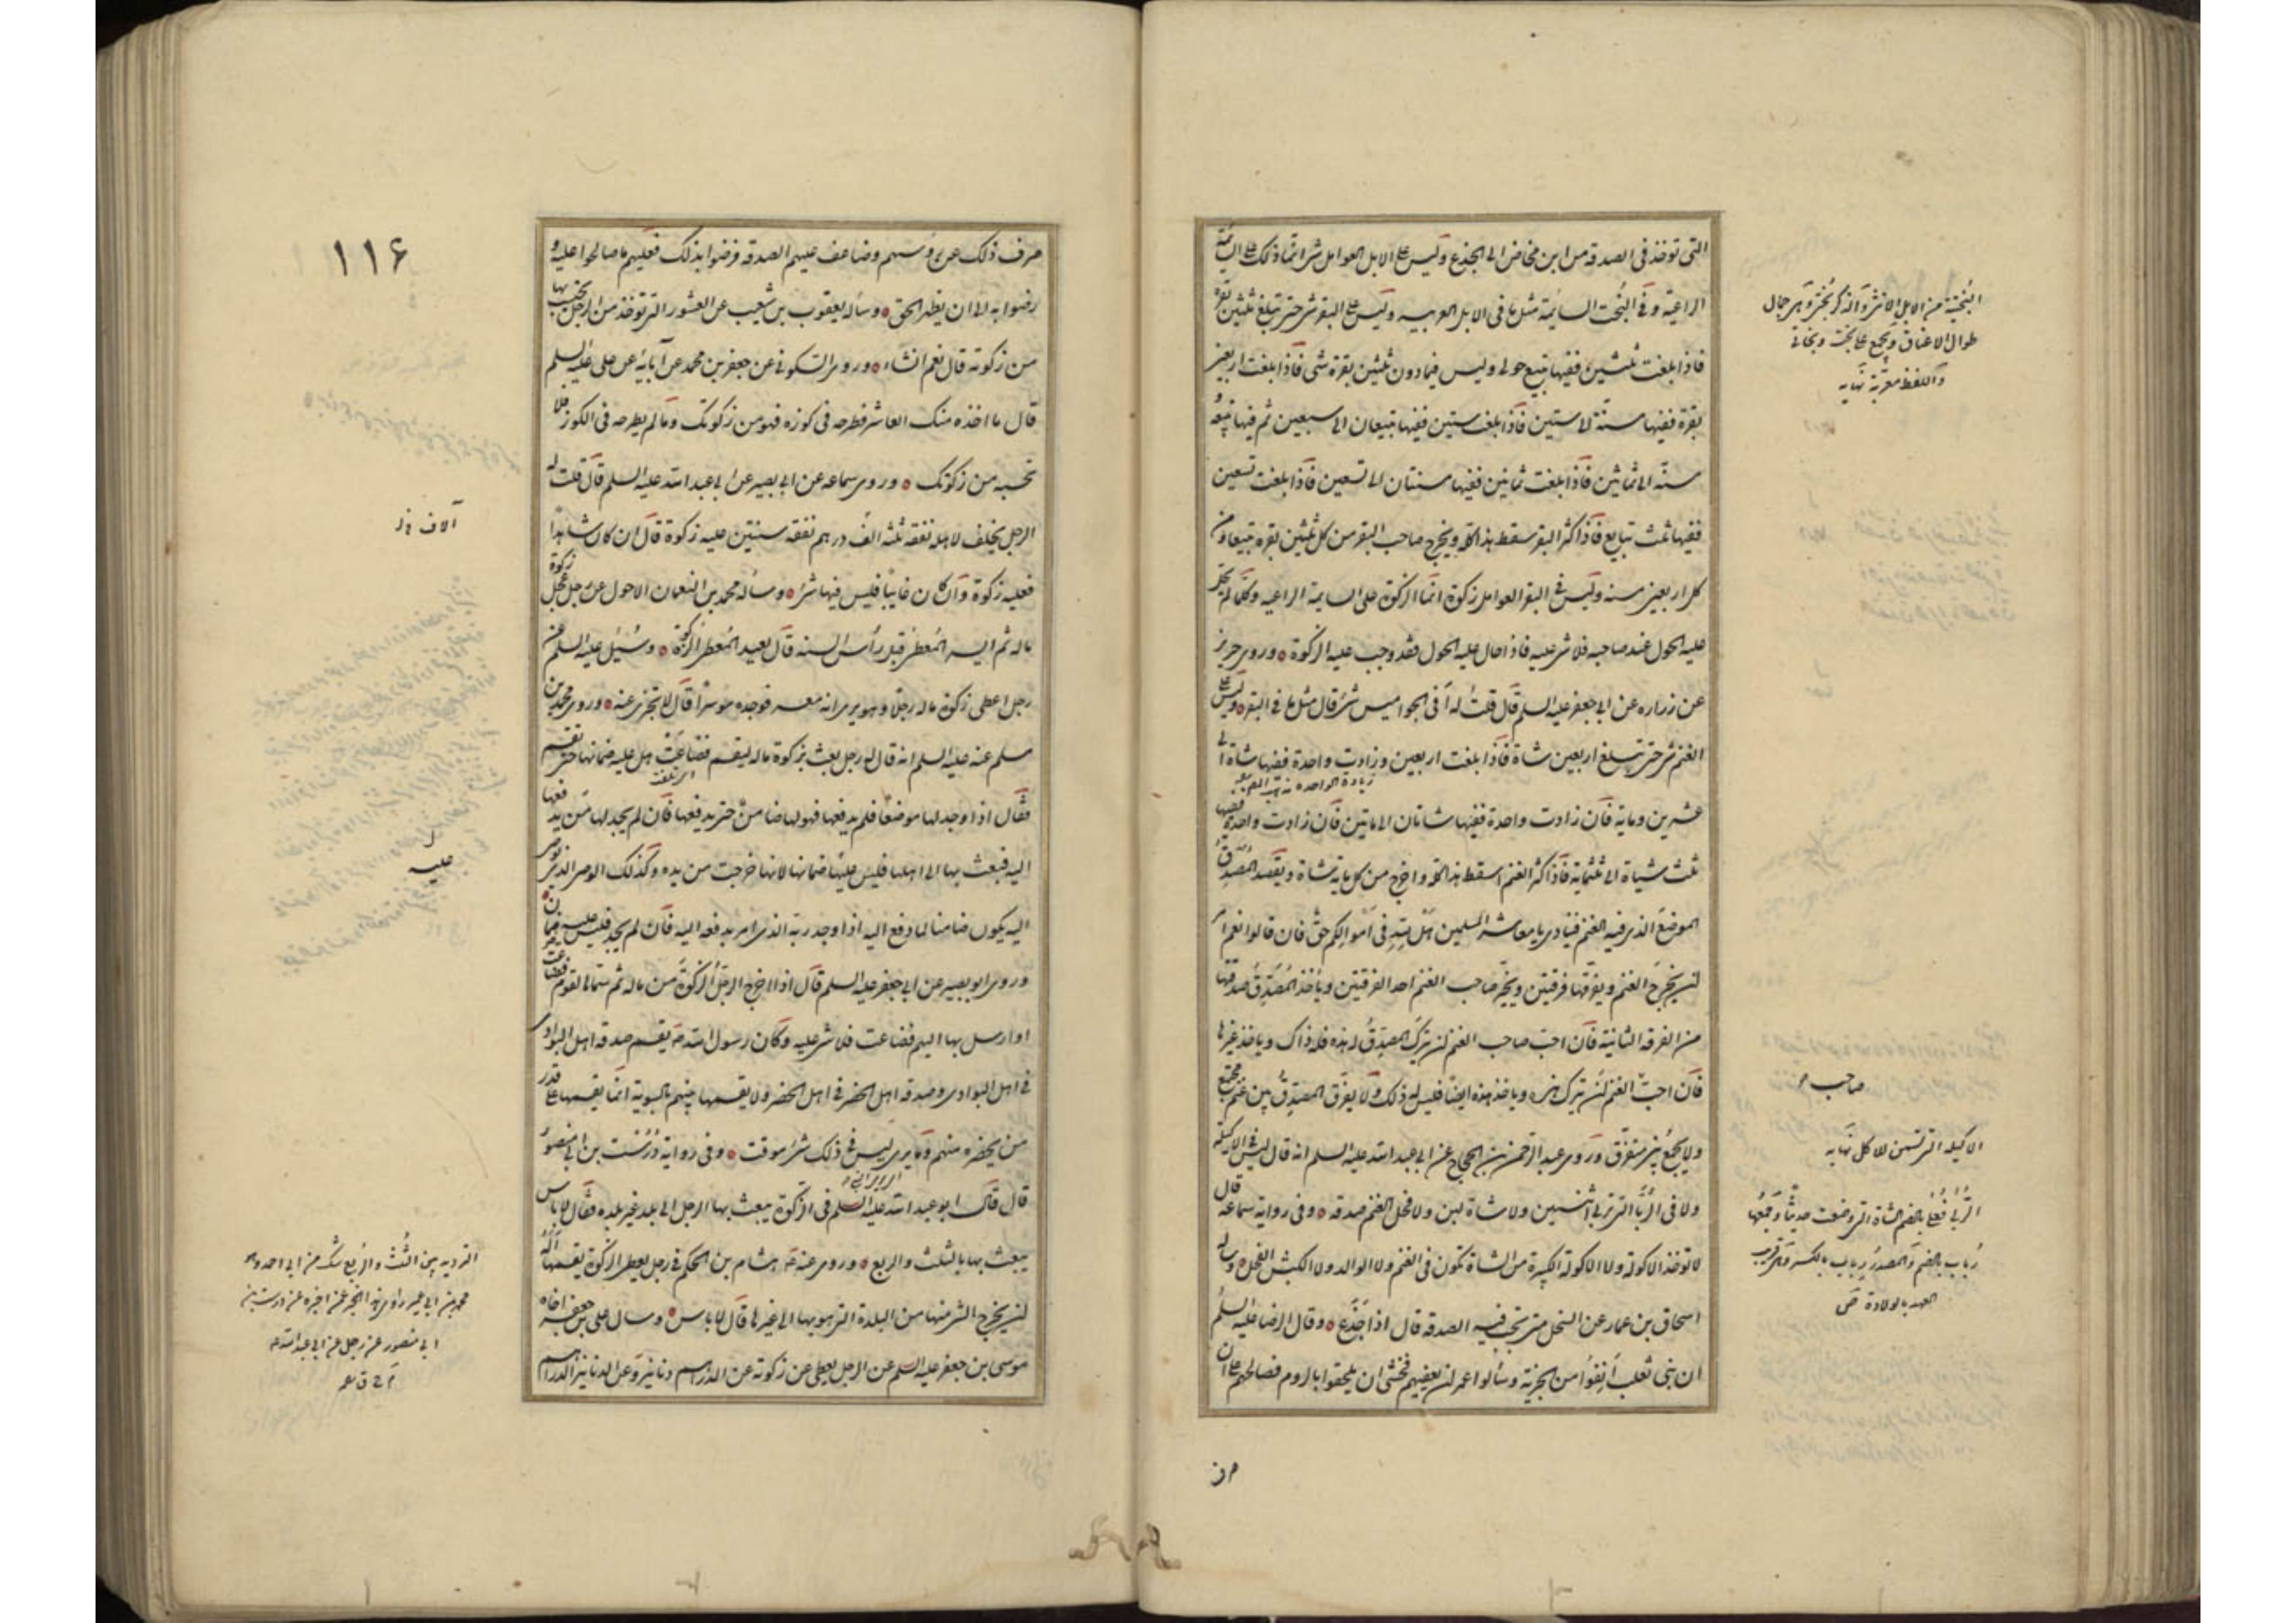 التى تؤخذ فى الصدقه من ابن مخاض الى الجذع وليس على الابل العوامل شئ انما ذلك على السائمة
الراعية وفى البخت السائمة مثل ما فى الابل العربيه وليس على البقر شئ حتى تبلغ ثلثين بقرة
فاذا بلغت ثلثين ففيها تبيع حولى وليس فيما دون ثلثين بقرة شى فاذا بلغت اربعين
بقرة ففيها مسنة الى ستين فاذا بلغت ستين ففيها تبيعان الى سبعين ثم فيها تبيعة
مسنة الى ثمانين فاذا بلغت ثمانين ففيها مسنتان الى تسعين فاذا بلغت تسعين
ففيها ثلث تبايع فاذا كثر البقر سقط هذا كله ويخرج صاحب البقر من كل ثلثين بقرة تبيعا ومن
كل اربعين مسنه وليس فى البقر العوامل زكوة انما الزكوة على السايمة الراعيه وكلما لم يحل
عليه الحول عند صاحبه فلا شئ عليه فاذا حال عليه الحول فقد وجب عليه الزكوة وروى حريز
عن زراره عن ابى جعفر عليه السلم قال قلت له فى الجواميس شئ قال مثل ما فى البقر وليس على
الغنم شئ حتى تبلغ اربعين شاة فاذا بلغت اربعين وزادت واحدة ففيها شاة الى
عشرين وماية فان زادت واحدة ففيها شاتان الى ماتين فان زادت واحدة ففيها
ثلث شياة الى ثلثماية فاذا كثر الغنم اسقط هذا كله واخرج من كل ماية شاة ويقصد المصدق
الموضع الذى فيه الغنم فينادى يا معاشر المسلمين هل لله فى اموالكم حق فان قالوا نعم امر
ان يخرج الغنم ويفرقها فرقتين ويخير صاحب الغنم احد الفرقتين وياخذ المصدق صدقتها
من الفرقه الثانية فان احب صاحب الغنم ان يترك المصدق له هذه فله ذاك وياخذ غيرها
فان احب الغنم ان يترك هذه وياخذ هذه ايضا فليس له ذلك ولا يفرق المصدق بين غنم مجتمع
ولا يجمع بين متفرق وروى عبد الرحمن بن الحجاج عن ابى عبد الله عليه السلم انه قال ليس فى الاكيلة
ولا فى الربا التى تربى اثنين ولا شاة لبن ولا فحل الغنم صدقه وفى رواية سماعة قال
لا تؤخذ الاكولة ولا الاكولة الكبيرة من الشاة تكون فى الغنم ولا الوالد ولا الكبش الفحل وساله
اسحاق بن عمار عن السخل متى تجب فيه الصدقه قال اذا جذع وقال الرضا عليه السلم
ان بنى تغلب انفوا من الجزية وسألوا عمر ان يعفيهم فخشى ان يلحقوا بالروم فصالحهم على ان
صرف
البختية من الابل الانثى والذكر بختى وهى جمال
طوال الاعناق ويجمع على بخت وبخاتى
واللفظ معربة نهايه
صاحب
الاكيله التى تسمن للاكل نهايه
الربى فعلى بالضم الشاة التى وضعت حديثا وجمعها
رباب بالضم والمصدر رباب بالكسر وهى قريب
العهد بالولادة ص
١١٦
صرف ذلك عن رؤسهم وضاعف عليهم الصدقه فرضوا بذلك فعليهم ما صالحوا عليه و
رضوا به الى ان يظهر الحق وساله يعقوب بن شعيب عن العشور التى تؤخذ من الرجل يحتسب بها
من زكوته قال نعم ان شاء وروى السكونى عن جعفر بن محمد عن آبائه عن على عليه السلم
قال ما اخذه منك العاشر فطرحه فى كوزه فهو من زكوتك وما لم يطرحه فى الكوز فلا
تحسبه من زكوتك وروى سماعه عن ابى بصير عن ابى عبد الله عليه السلم قال قلت له
الرجل يخلف لاهله نفقه ثلثه الف درهم نفقه سنتين عليه زكوة قال ان كان شاهدا
فعليه زكوة وان كان غايبا فليس فيها شئ وساله محمد بن النعمان الاحول عن رجل عجل زكوة
ماله ثم ايسر المعطى قبل رأس السنه قال يعيد المعطى الزكوة وسئل عليه السلم عن
رجل اعطى زكوة ماله رجلا وهو يرى انه معسر فوجده موسرا قال لا تجزى عنه وروى محمد بن
مسلم عنه عليه السلم انه قال له رجل بعث بزكوة ماله ليقسم فضاعت هل عليه ضمانها حتى تقسم
فقال اذا وجد لها موضعا فلم يدفعها فهو لها ضامن حتى يدفعها فان لم يجد لها من يدفعها
اليه فبعث بها الى اهلها فليس عليه ضمانها لانها خرجت من يده وكذلك الوصى الذى يوصى
اليه يكون ضامنا لما دفع اليه اذا وجد ربه الذى امر بدفعه اليه فان لم يجد فليس عليه ضمان
وروى ابو بصير عن ابى جعفر عليه السلم قال اذا اخرج الرجل الزكوة من ماله ثم سماها لقوم فضاعت
او ارسل بها اليهم فضاعت فلا شئ عليه وكان رسول الله ص يقسم صدقه اهل البوادى
فى اهل البوادى وصدقه اهل الحضر فى اهل الحضر ولا يقسمها بينهم بالسوية انما يقسمها على قدر
من يحضره منهم وما يرى ليس فى ذلك شئ موقت وفى رواية درست بن ابى منصور
قال قال ابو عبد الله عليه السلم فى الزكوة يبعث بها الرجل الى بلد غير بلده فقال لا باس
يبعث بها بالثلث والربع وروى عنه هشام بن الحكم فى رجل يعطى الزكوة يقسمها اله
ان يخرج الشئ منها من البلدة التى هو بها الى غيرها قال لا باس وسال على بن جعفر اخاه
موسى بن جعفر عليه السلم عن الرجل يعطى عن زكوته عن الدراهم دنانير وعن الدنانير الدراهم
آلاف
عليه
الترديد بين الثلث والربع شك من ابى احمد وهو
محمد بن ابى عمير راوى هذا الخبر عن اخبره عن درست بن
ابى منصور عن رجل عن ابى عبد الله